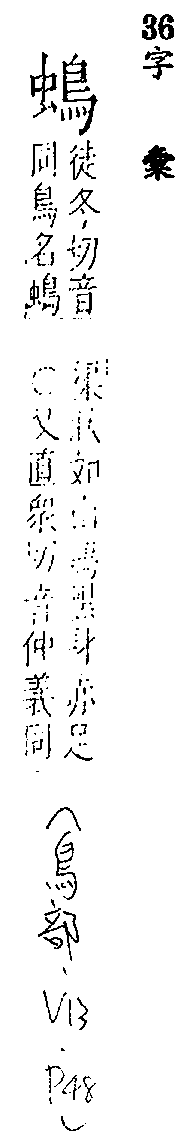 36
字彙
䳋
徒冬切音
同鳥名䳋
渠狀如山鷄黑身赤足
○又直衆切音仲義同
(鳥部.V13.P48)